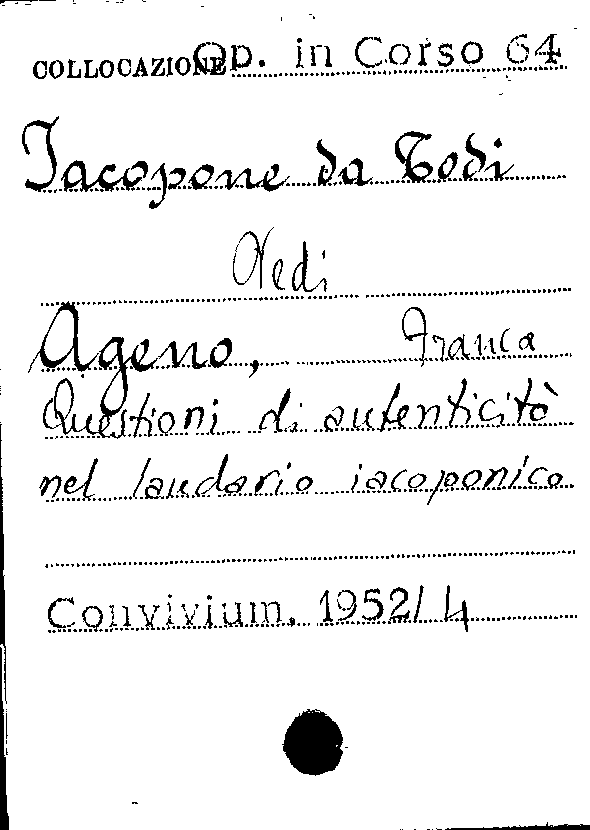 COLLOCAZIONE Op. in Corso 64
Iacopone da Todi
Vedi
Ageno, Franca
Questioni di autenticità
nel laudario iacoponico
Convivium. 1952/4